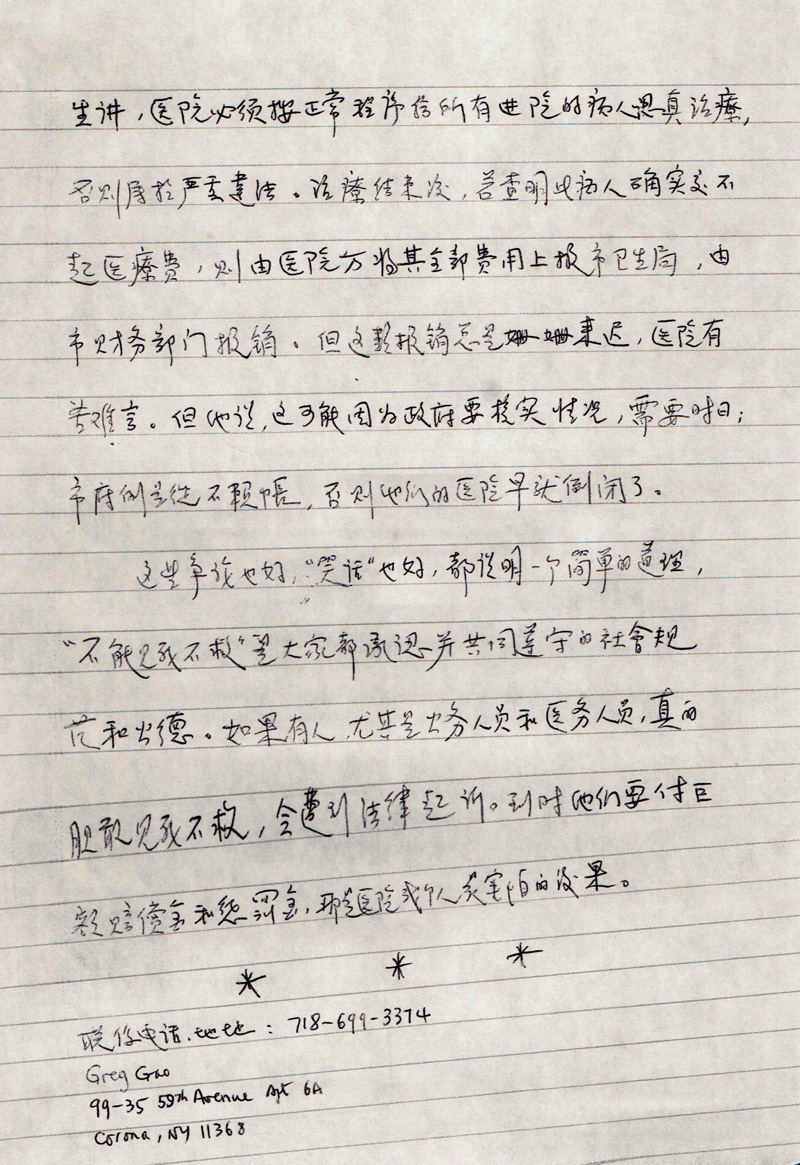 生讲，医院必须按正常程序给所有进院的病人认真治療，
否则属於严重違法。治療结束後，若查明此病人确实交不
起医療费，则由医院方将其全部费用上报市卫生局，由
市财务部门报销。但这款报销总是姗姗来迟，医院有
苦难言。但他说，这可能因为政府要核实情况，需要时日；
市府倒是从不賴帳，否则他们的医院早就倒闭了。
这些争论也好，“笑话”也好，都说明一个简单的道理，
“不能见死不救”是大家都承認并共同遵守的社會规
范和公德。如果有人，尤其是公务人员和医务人员，真的
胆敢见死不救，会遭到法律起诉。到时他们要付巨
额赔偿金和惩罰金，那是医院或个人最害怕的後果。
* * *
联係电话、地址：718-699-3374
Greg Gao
99-35 59th Avenue Apt 6A
Corona, NY 11368